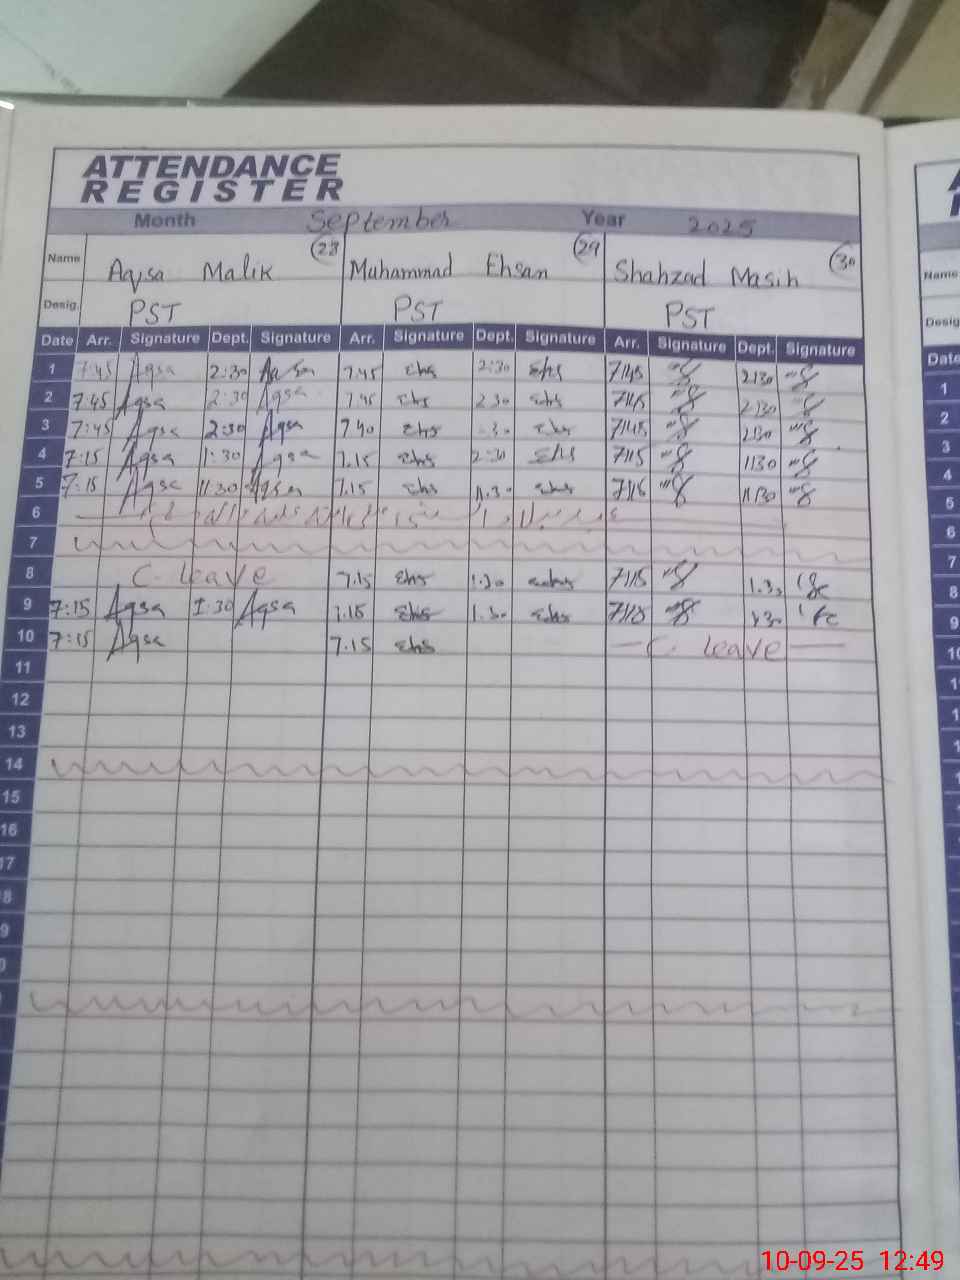 ATTENDANCE
REGISTER
Month September Year 2025
Name Aqsa Malik 28 Muhammad Ehsan 29 Shahzad Masih 30
Desig. PST PST PST
Date Arr. Signature Dept. Signature Arr. Signature Dept. Signature Arr. Signature Dept. Signature
1 7:45 Aqsa 2:30 Aqsa 7.45 Ehs 2:30 Ehs 7:45 2:30
2 7:45 Aqsa 2:30 Aqsa 7.45 Ehs 2.30 Ehs 7:45 2:30
3 7:45 Aqsa 2:30 Aqsa 7.40 Ehs .30 Ehs 7:45 2:30
4 7:15 Aqsa 1:30 Aqsa 7.15 Ehs 2:30 Ehs 7:15 1:30
5 7:15 Aqsa 11:30 Aqsa 7.15 Ehs 11.30 Ehs 7:15 11:30
6
7
8 C. leave 7.15 Ehs 1.30 Ehs 7:15 1.30
9 7:15 Aqsa 1:30 Aqsa 7.15 Ehs 1.30 Ehs 7:15 1.30
10 7:15 Aqsa 7.15 Ehs C. leave
11
12
13
14
15
16
17
8
9
Name
Desig
Date
1
2
3
4
5
6
7
8
9
10
1
10-09-25 12:49